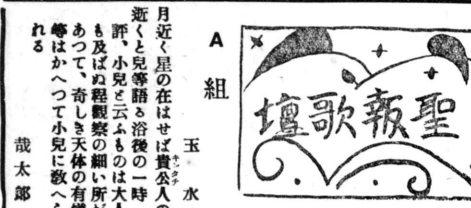 聖報歌壇
A組
玉水
月近く星の在はせば貴公人の
キンダチ
逝くと兒等語る浴後の一時
評、小兒と云ふものは大人
も及ばぬ程觀察の細い所が
あつて、奇しき天体の有樣
等はかへつて小兒に敎へら
れる
哉太郎